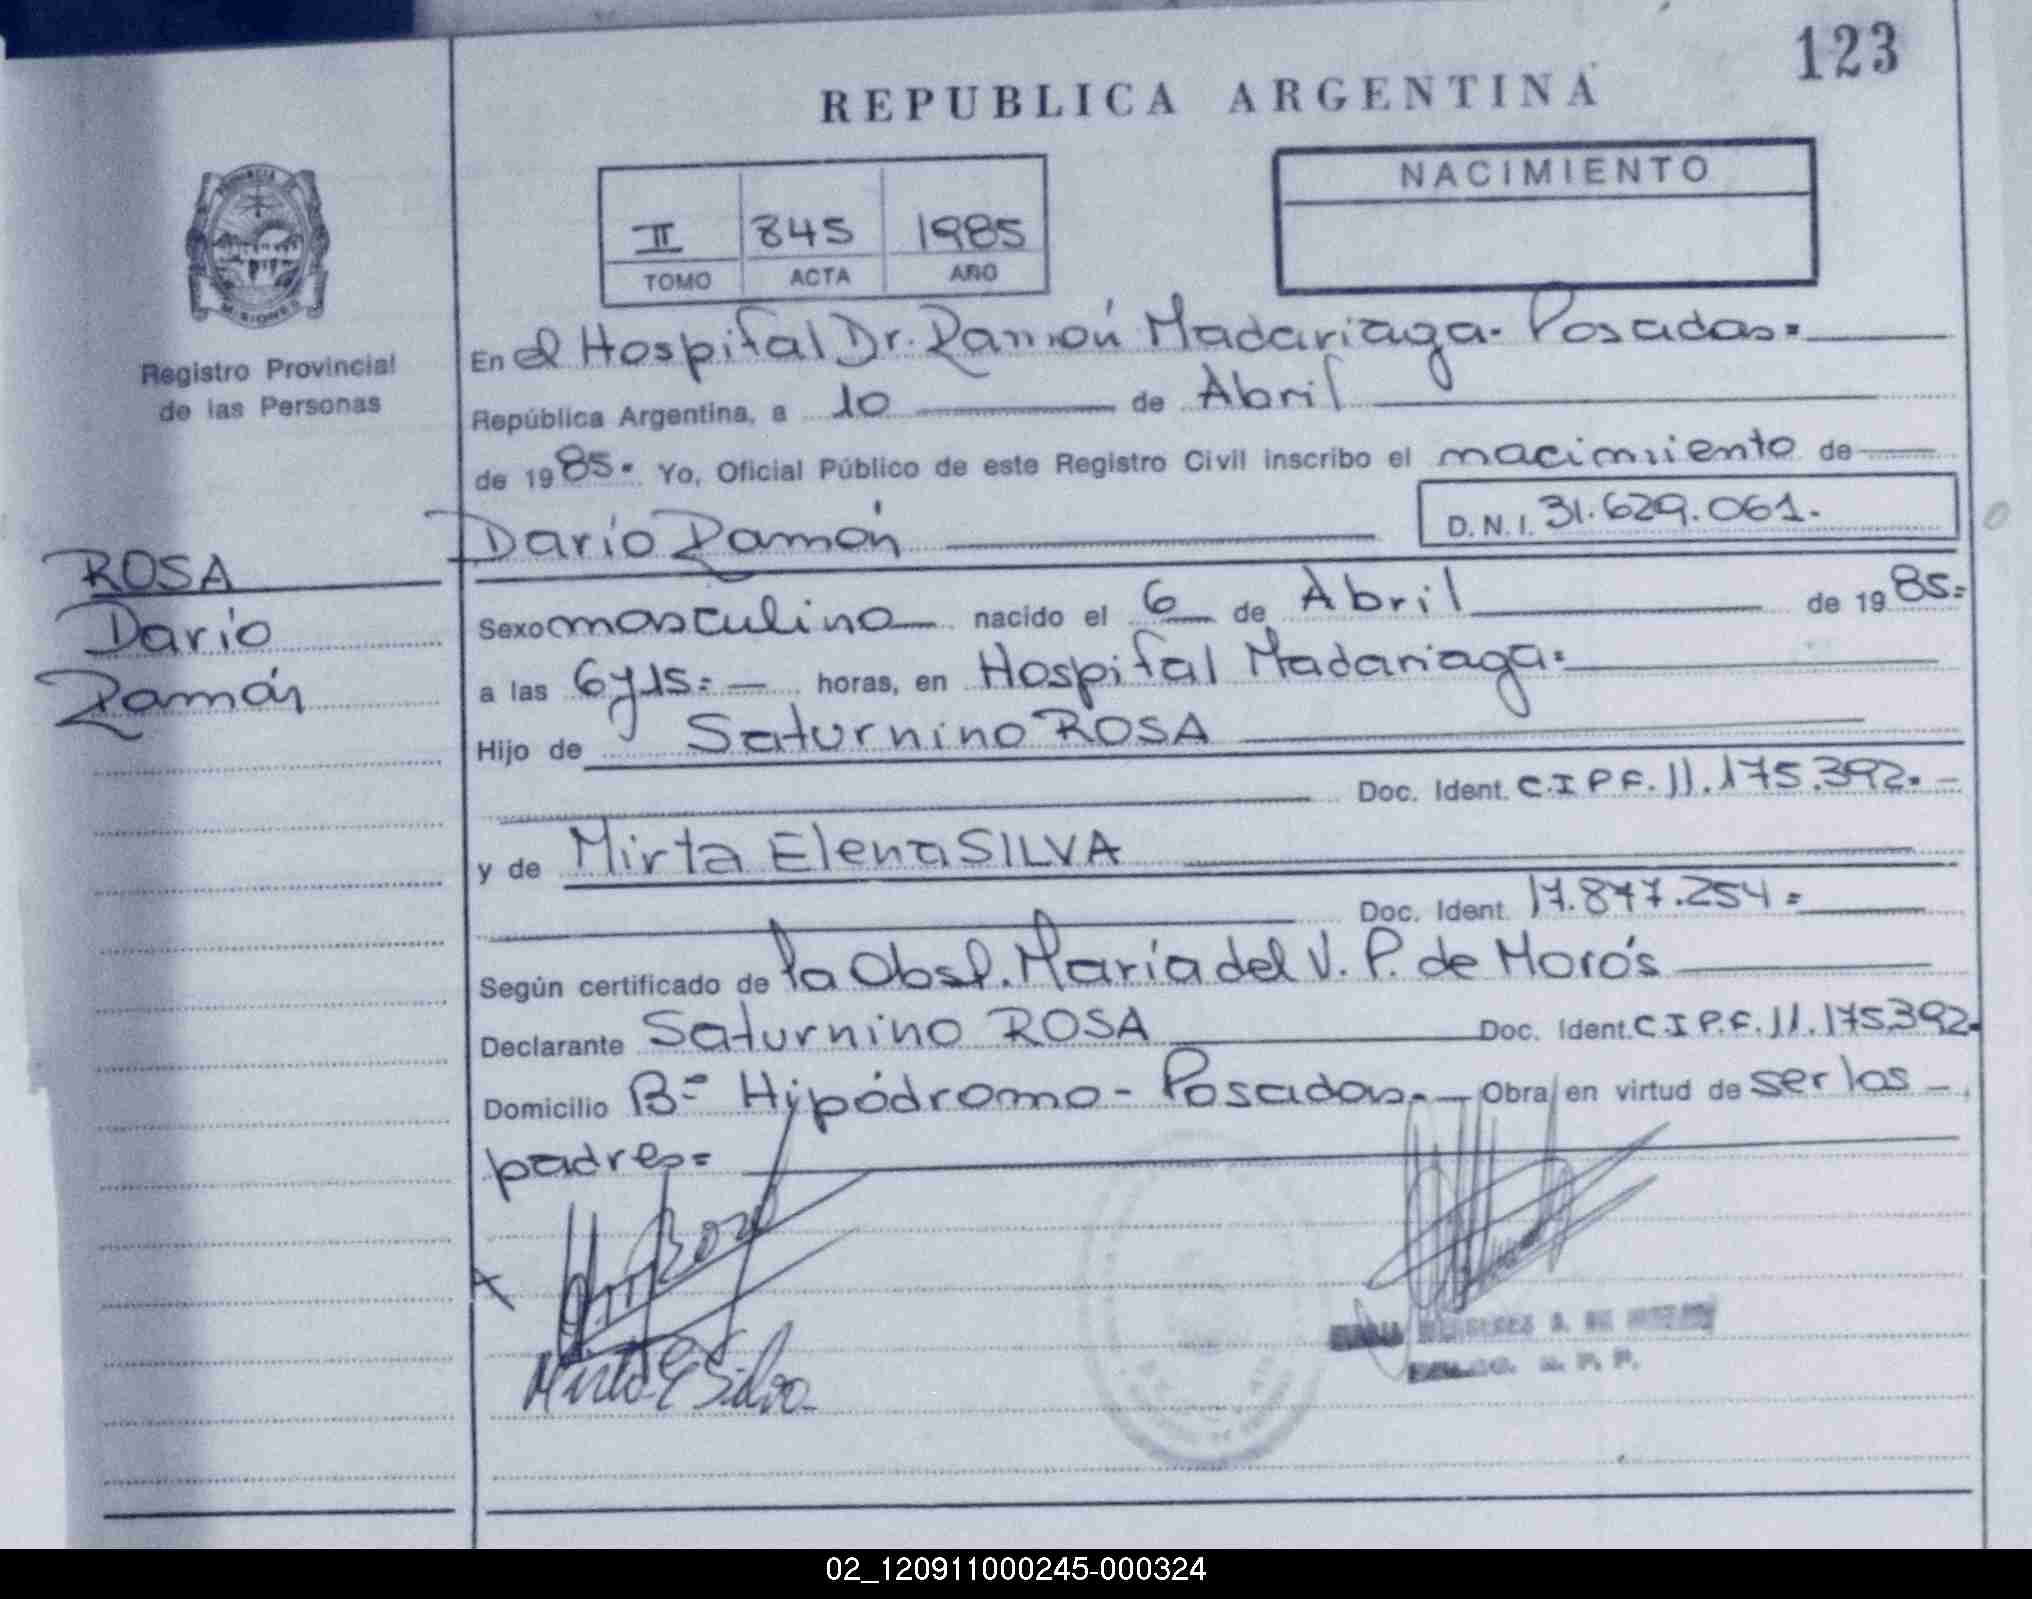 123
REPUBLICA ARGENTINA
PROVINCIA DE
MISIONES
Registro Provincial
de las Personas
II 845 1985
TOMO ACTA AÑO
NACIMIENTO
En el Hospital Dr. Ramón Madariaga - Posadas=
República Argentina, a 10 de Abril
de 1985= Yo, Oficial Público de este Registro Civil inscribo el nacimiento de
Darío Ramón D.N.I. 31.629.061.
ROSA
Darío
Ramón
Sexo masculino nacido el 6 de Abril de 1985=
a las 6y15=- horas, en Hospital Madariaga=
Hijo de Saturnino ROSA
Doc. Ident. C.I P F. 11.175.392.-
y de Mirta Elena SILVA
Doc. Ident. 17.877.254=
Según certificado de la Obst. María del V. P. de Morós
Declarante Saturnino ROSA Doc. Ident. C.I P.F. 11.175392.
Domicilio Bº Hipódromo - Posadas.- Obra en virtud de ser los -
padres=
Mirta E Silva
02_120911000245-000324